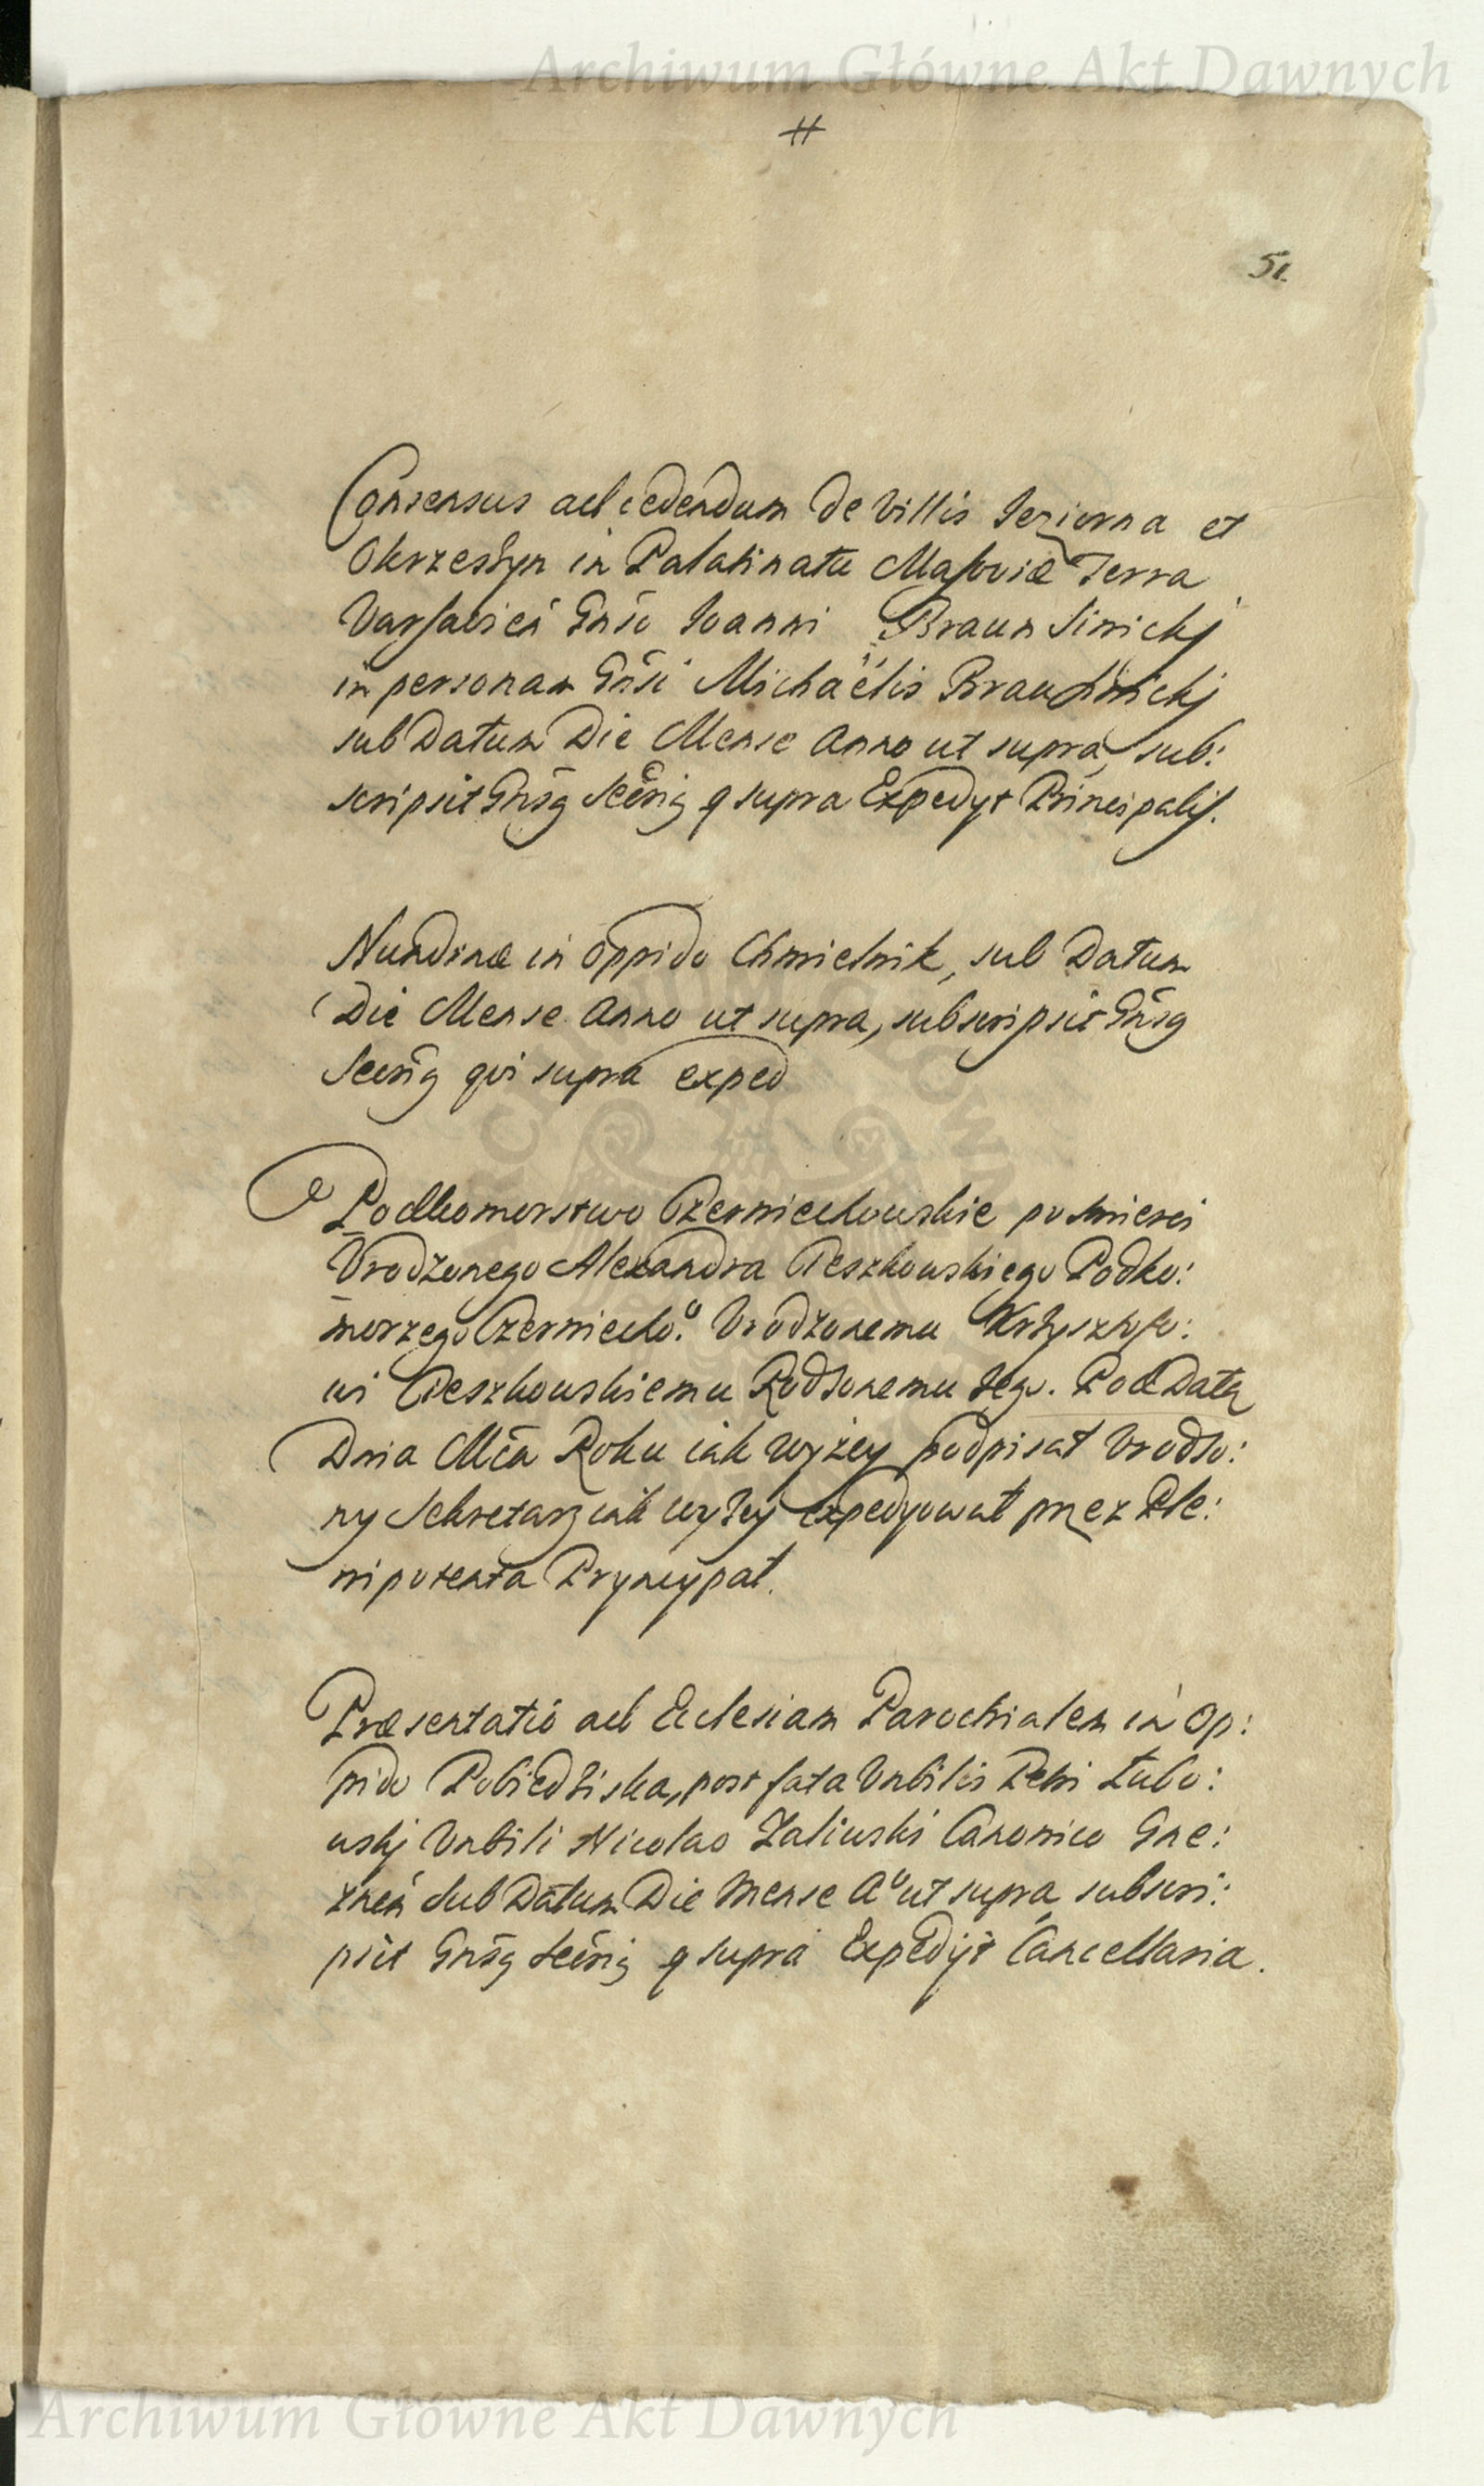 Archiwum Główne Akt Dawnych
#
51
Consensus ad cedendum de Villis Jeziorna et
Okrzeszyn in Palatinatu Masoviæ Terra
Varsavień Gnso Joanni Braun
in personam Gnsi Michaëlis
sub Datum Die Mense Anno ut supra, sub:
scripsit Gnsg Secrig q supra Expedyt Principalis.
Nundinæ in Oppido Chmielnik, sub Datum
Die Mense Anno ut supra, subscripsit Gnsg
Secrig qvi supra exped
Podkomorstwo Czerniechowskie po smierci
Vrodzonego Alexandra Cieszkowskiego Podko:
morzego Czerniecho:o Vrodzonemu Krzysztofo:
wi Cieszkowskiemu Rodzonemu Jego. Pod Datą
Dnia Mca Roku iak wyżey podpisał Vrodzo:
ny Sekretarz iak wyżey expedyował przez Ple:
nipotenta Pryncypał.
Præsentatio ad Ecclesiam Parochialem in Op:
pido Pobiedziska, post fata Vnbilis Petri Łubo:
wskj Vnbili Nicolao Zaliwski Canonico Gne:
zneń Sub Datum Die Mense Ao ut supra subscri:
psit Gnsg Secrig q supra Expedijt Cancellaria.
Archiwum Główne Akt Dawnych